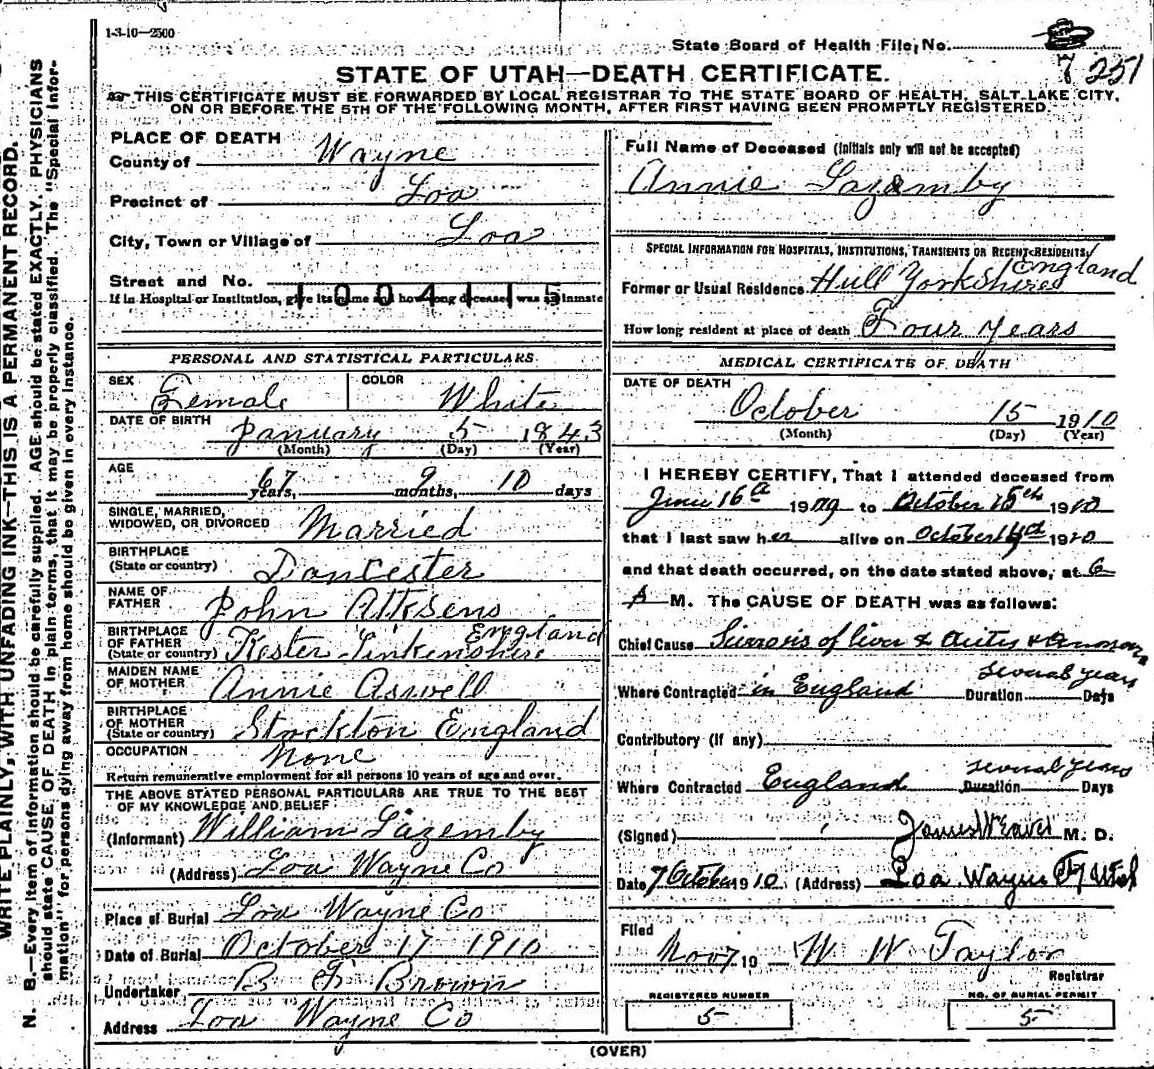 1-3-10—2500
State Board of Health File, No.
7 251
STATE OF UTAH—DEATH CERTIFICATE.
THIS CERTIFICATE MUST BE FORWARDED BY LOCAL REGISTRAR TO THE STATE BOARD OF HEALTH, SALT LAKE CITY,
ON OR BEFORE THE 5TH OF THE FOLLOWING MONTH, AFTER FIRST HAVING BEEN PROMPTLY REGISTERED.
WRITE PLAINLY, WITH UNFADING INK—THIS IS A PERMANENT RECORD.
N. B.—Every item of information should be carefully supplied. AGE should be stated EXACTLY. PHYSICIANS
should state CAUSE OF DEATH in plain terms, that it may be properly classified. The "Special Infor-
mation" for persons dying away from home should be given in every instance.
PLACE OF DEATH
County of Wayne
Precinct of Loa
City, Town or Village of Loa
Street and No.
1004115
If in Hospital or Institution, give its name and how long deceased was an inmate
PERSONAL AND STATISTICAL PARTICULARS
SEX Female COLOR White
DATE OF BIRTH January 5 1843
(Month) (Day) (Year)
AGE 67 years, 9 months, 10 days
SINGLE, MARRIED,
WIDOWED, OR DIVORCED Married
BIRTHPLACE
(State or country) Dancester
NAME OF
FATHER John Atksens
BIRTHPLACE
OF FATHER
(State or country) Kester Linkenshire England
MAIDEN NAME
OF MOTHER Annie Aswell
BIRTHPLACE
OF MOTHER
(State or country) Stockton England
OCCUPATION None
Return remunerative employment for all persons 10 years of age and over.
THE ABOVE STATED PERSONAL PARTICULARS ARE TRUE TO THE BEST
OF MY KNOWLEDGE AND BELIEF
(Informant) William Lazemby
(Address) Loa Wayne Co
Place of Burial Loa Wayne Co
Date of Burial October 17 1910
Undertaker B F Brown
Address Loa Wayne Co
Full Name of Deceased (initials only will not be accepted)
Annie Lazemby
SPECIAL INFORMATION FOR HOSPITALS, INSTITUTIONS, TRANSIENTS OR RECENT RESIDENTS
Former or Usual Residence Hull Yorkshire England
How long resident at place of death Four years
MEDICAL CERTIFICATE OF DEATH
DATE OF DEATH
October 15 1910
(Month) (Day) (Year)
I HEREBY CERTIFY, That I attended deceased from
June 16 19 to October 15th 1910
that I last saw her alive on October 1910
and that death occurred, on the date stated above, at 6
A M. The CAUSE OF DEATH was as follows:
Chief Cause of liver &
Where Contracted in England Duration several years Days
Contributory (if any)
Where Contracted England Duration several years Days
(Signed) James Weaver M. D.
Date 7 October 1910 (Address) Loa Wayne Utah
Filed
Nov 7 19 W W Taylor
Registrar
REGISTERED NUMBER
5
NO. OF BURIAL PERMIT
5
(OVER)